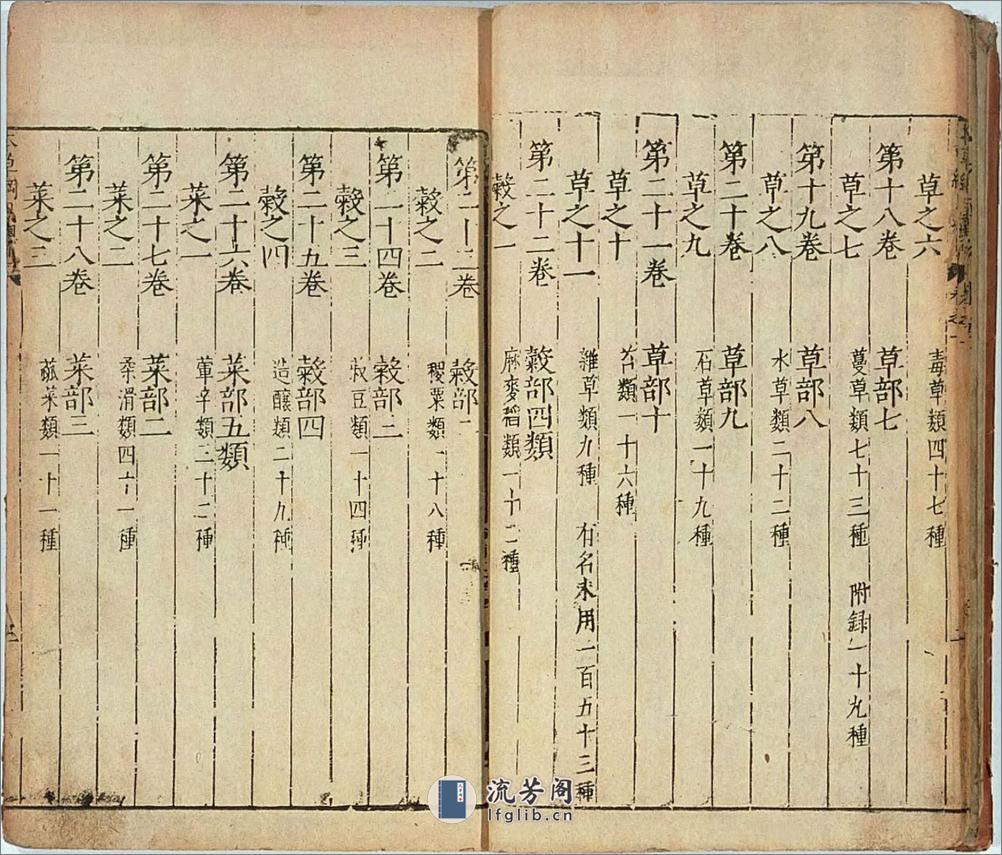 草之六 毒草類四十七種
第十八卷 草部七
草之七 蔓草類七十三種 附録一十九種
第十九卷 草部八
草之八 水草類二十二種
第二十卷 草部九
草之九 石草類一十九種
第二十一卷 草部十
草之十 苔類一十六種
草之十一 雜草類九種 有名未用一百五十三種
第二十二卷 穀部四類
穀之一 麻麥稻類一十二種
第二十三卷 穀部二
穀之二 稷粟類一十八種
第二十四卷 穀部三
穀之三 菽豆類一十四種
第二十五卷 穀部四
穀之四 造釀類二十九種
第二十六卷 菜部五類
菜之一 葷辛類三十二種
第二十七卷 菜部二
菜之二 柔滑類四十一種
第二十八卷 菜部三
菜之三 蓏菜類一十一種
流芳阁
lfglib.cn